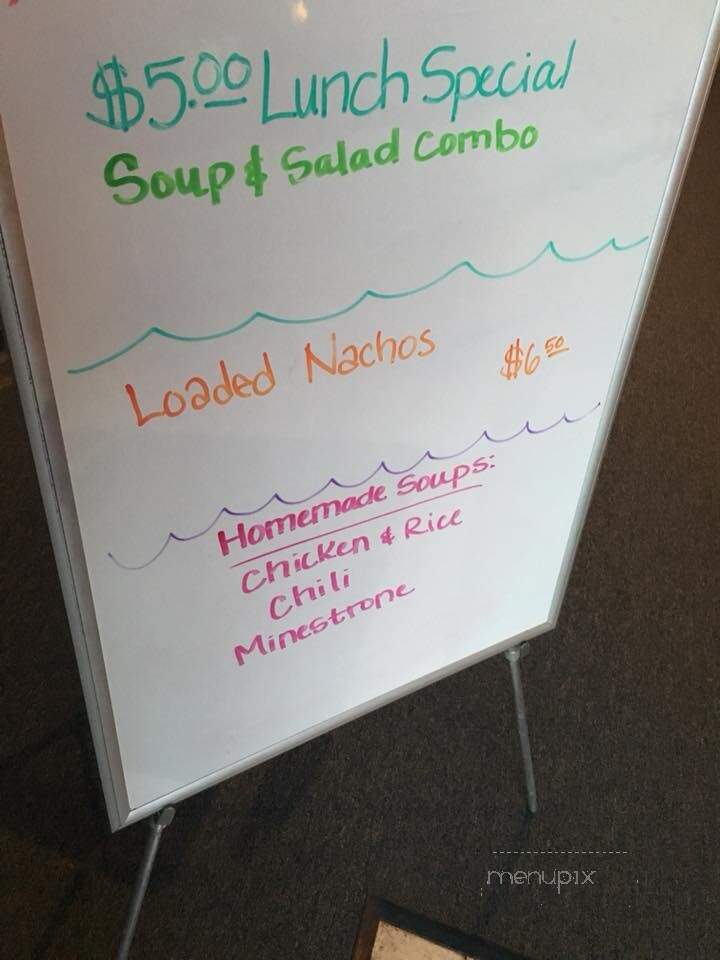 $5.00 Lunch Special
Soup & Salad Combo
Loaded Nachos $6 50
Homemade Soups:
Chicken & Rice
Chili
Minestrone
menupix